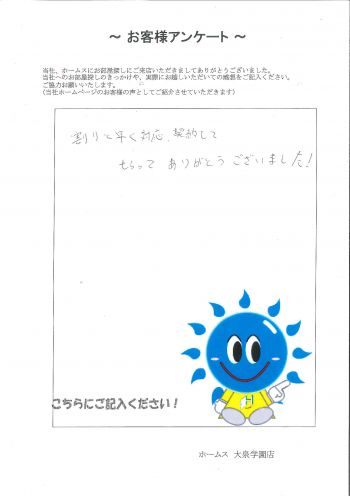 ～ お客様アンケート ～
当社、ホームスにお部屋探しにご来店いただきましてありがとうございました。
当社へのお部屋探しのきっかけや、実際にお越しいただいての感想をご記入ください。
ご協力お願いいたします。
（当社ホームページのお客様の声としてご紹介させていただきます）
割りと早く対応、契約して
もらって ありがとうございました！
こちらにご記入ください！
H
ホームス 大泉学園店